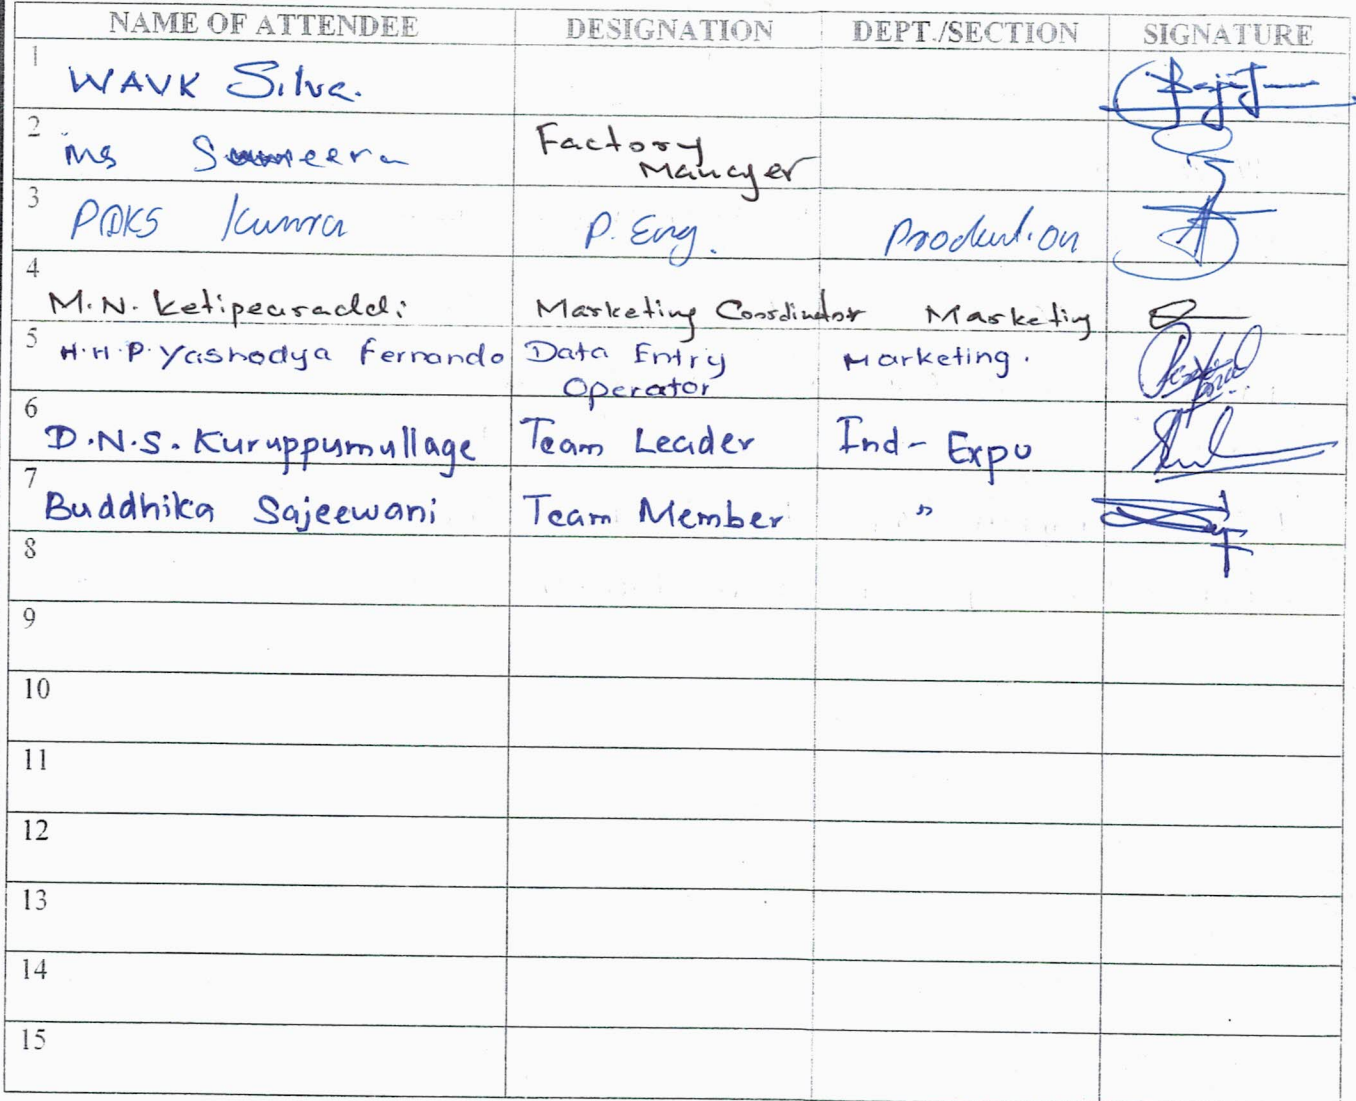 NAME OF ATTENDEE DESIGNATION DEPT./SECTION SIGNATURE
1 WAVK Silva.
2 Ms Sameera Factory
Manager
3 PDKS Kumra P. Eng. Production
4 M.N. Marketing Coordinator Marketing
5 H.H.P. Yashodya Fernando Data Entry Marketing.
Operator
6 D.N.S. Kuruppumullage Team Leader Ind- Expo
7 Buddhika Sajeewani Team Member "
8
9
10
11
12
13
14
15